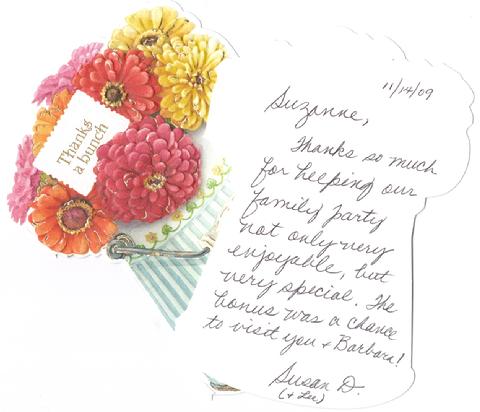 Thanks
a bunch
11/14/09
Suzanne,
Thanks so much
for helping our
family party
not only very
enjoyable, but
very special. The
bonus was a chance
to visit you + Barbara!
Susan D.
(+ Lee)